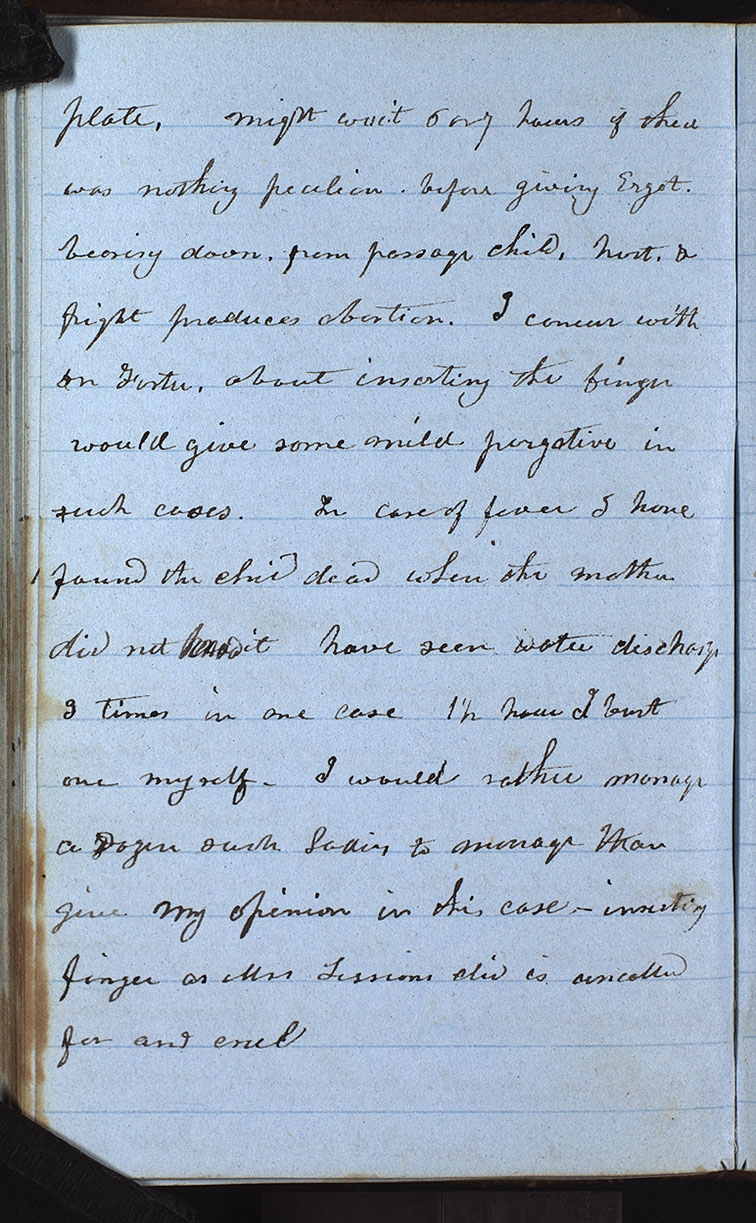 plate, might wait 6 or 7 hours if there
was nothing peculiar. before giving Ergot.
bearing down. from passage child, hurt, &
fright produces abortion. I concur with
Dr Foster, about inserting the finger
would give some mild purgative in
such cases. In case of fever I have
found the child dead when the mother
did not know it have seen water discharge
3 times in one case 1½ hour I burst
one myself - I would rather manage
a Dozen such Ladies to manage than
give my opinion in this case - inserting
finger as Mrs Sessions did is uncalled
for and cruel